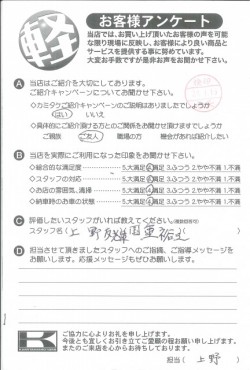 軽
お客様アンケート
当店では、お買い上げ頂いたお客様の声を可能
な限り現場に反映し、お客様により良い商品と
サービスを提供する事に努めています。
大変お手数ですが是非お声をお聞かせ下さい。
Ⓐ 当店はご紹介を大切にしております。
ご紹介キャンペーンについてお聞かせ下さい。
◇カミタケご紹介キャンペーンのご説明はありましたでしょうか
はい いいえ
◇具体的にご紹介頂ける方とのご関係をお聞かせ頂けますでしょうか
ご親族 ご友人 職場の方 機会があれば紹介したい
Ⓑ 当店を実際にご利用になった印象をお聞かせ下さい。
◇総合的な満足度 5.大満足 4.満足 3.ふつう 2.やや不満 1.不満
◇スタッフの対応 5.大満足 4.満足 3.ふつう 2.やや不満 1.不満
◇お店の雰囲気、清掃 5.大満足 4.満足 3.ふつう 2.やや不満 1.不満
◇納車時のお車の状態 5.大満足 4.満足 3.ふつう 2.やや不満 1.不満
Ⓒ 評価したいスタッフがいれば教えてください。(複数回答可)
スタッフ名( 上野
Ⓓ 担当させて頂きましたスタッフへのご指摘、ご指導メッセージを
お願いします。応援メッセージもぜひお願いします。
K
ご協力に心よりお礼を申し上げます。
今後とも宜しくお引き立てご愛顧の程お願い申し上げます。
またのご来店を心からお待ちしております。
担当( 上野 )